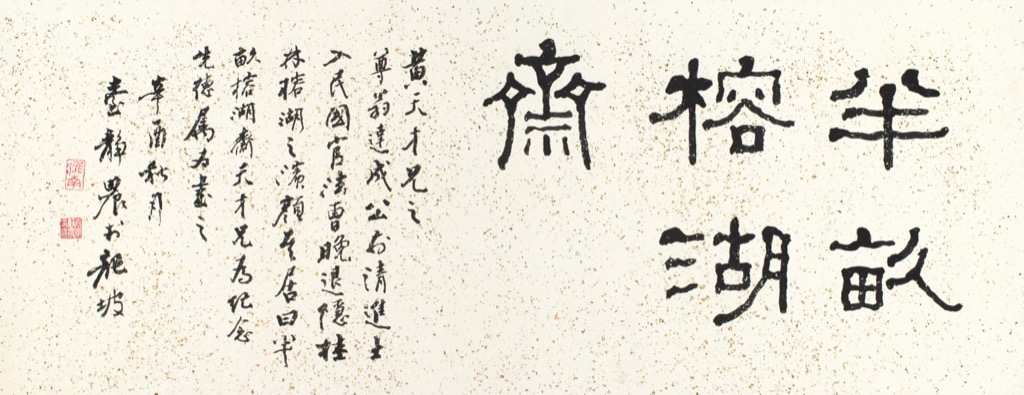 半畝
榕湖
齋
黄天才兄之
尊翁達成公前清進士
入民國官法曹晚退隱桂
林榕湖之濱顏其居曰半
畝榕湖齋天才兄為紀念
先德屬為書之
辛酉秋月
臺靜農於龍坡